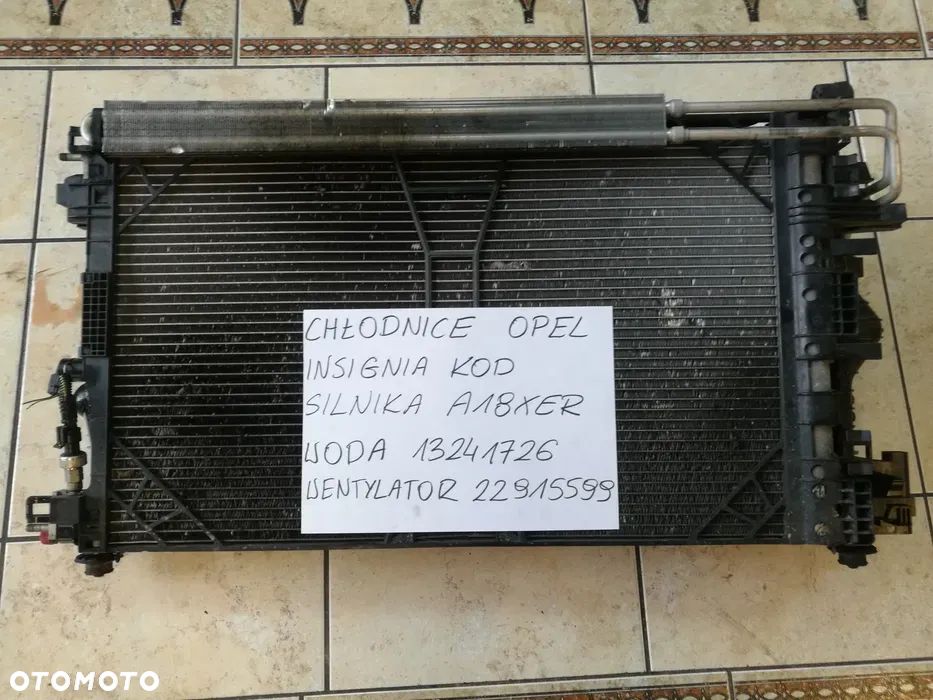 CHŁODNICE OPEL
INSIGNIA KOD
SILNIKA A18XER
WODA 13241726
WENTYLATOR 22915599
OTOMOTO